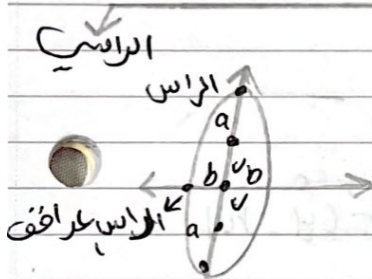 الراسي
الراس
a
b b
الراس عدافقي
a